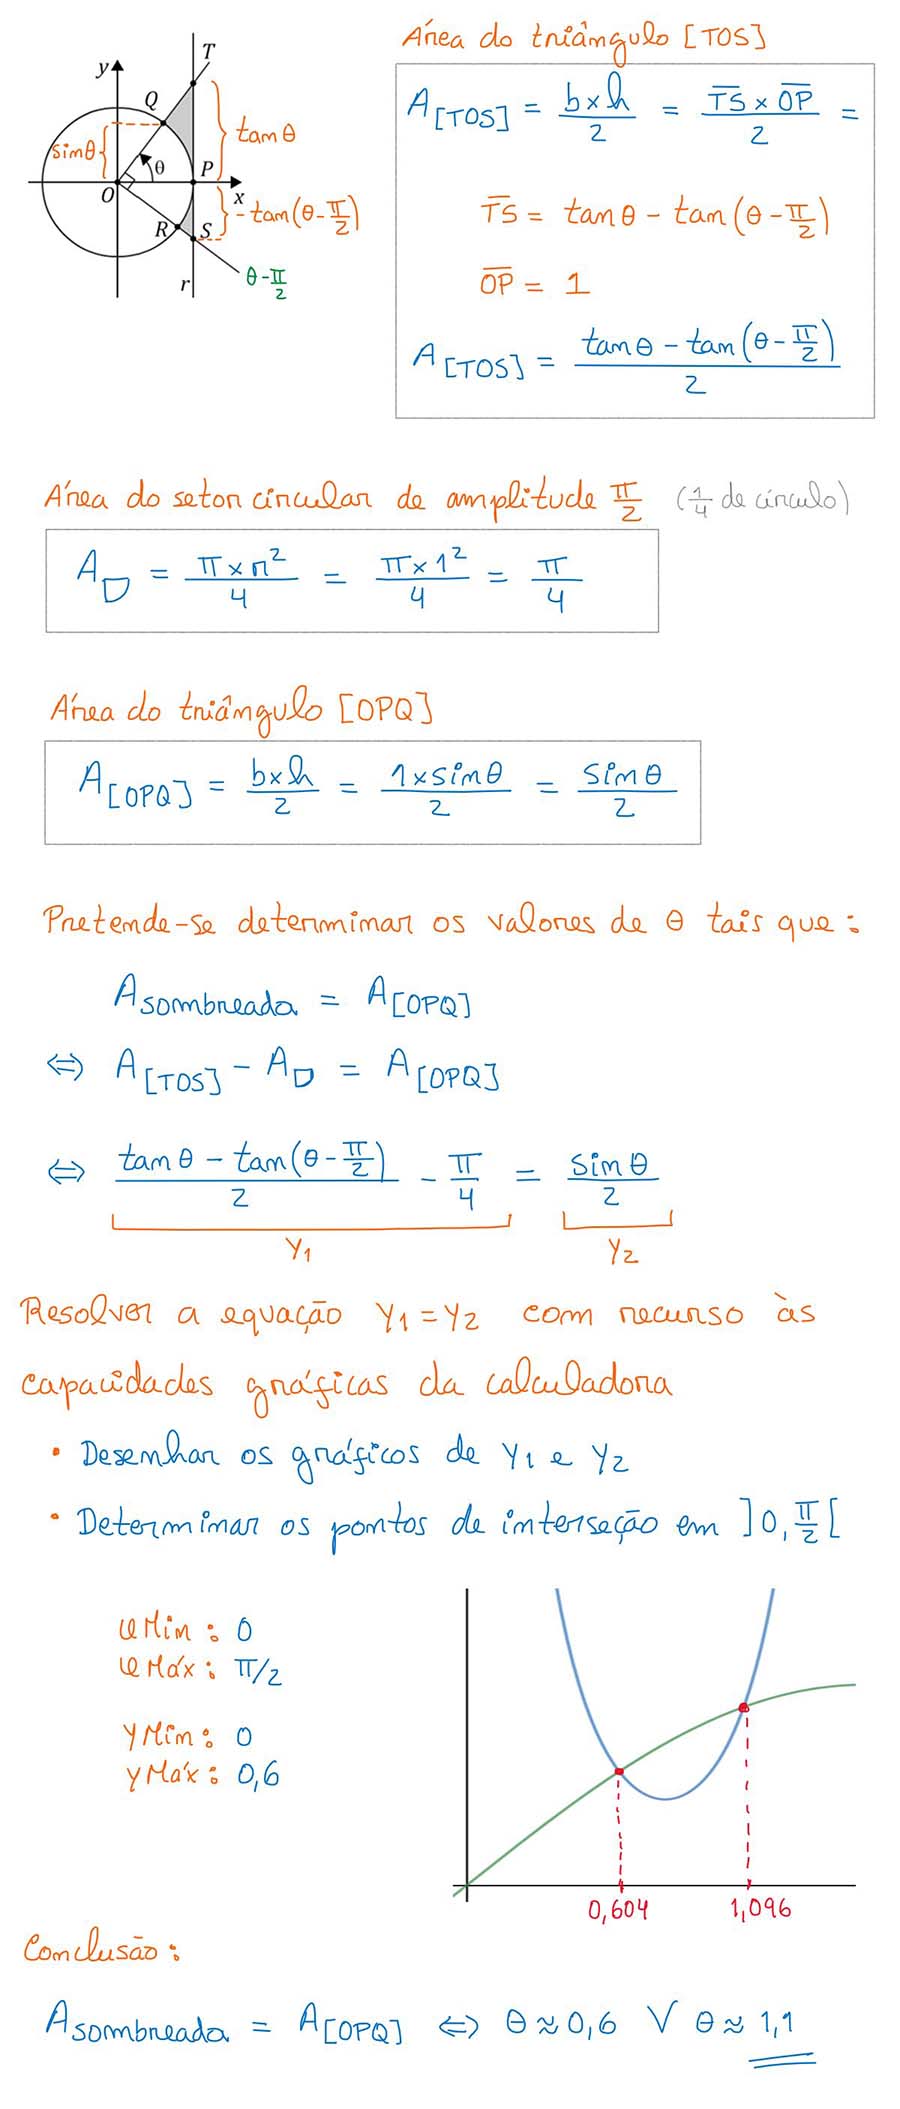 Área do triângulo [TOS]
y
T
Q
tan θ
sin θ
θ
P
O
x
-tan(θ-π/2)
R
S
r
θ-π/2
A[TOS] = b×h/2 = T̅S̅×O̅P̅/2 =
T̅S̅ = tan θ - tan(θ-π/2)
O̅P̅ = 1
A[TOS] = (tan θ - tan(θ-π/2))/2
Área do setor circular de amplitude π/2 (1/4 de círculo)
A⌔ = π×r²/4 = π×1²/4 = π/4
Área do triângulo [OPQ]
A[OPQ] = b×h/2 = 1×sin θ/2 = sin θ/2
Pretende-se determinar os valores de θ tais que:
Asombreada = A[OPQ]
⇔ A[TOS] - A⌔ = A[OPQ]
⇔ (tan θ - tan(θ-π/2))/2 - π/4 = sin θ/2
Y1 Y2
Resolver a equação Y1=Y2 com recurso às
capacidades gráficas da calculadora
• Desenhar os gráficos de Y1 e Y2
• Determinar os pontos de interseção em ]0,π/2[
xMin: 0
xMáx: π/2
yMin: 0
yMáx: 0,6
0,604 1,096
Conclusão:
Asombreada = A[OPQ] ⇔ θ≈0,6 ∨ θ≈1,1